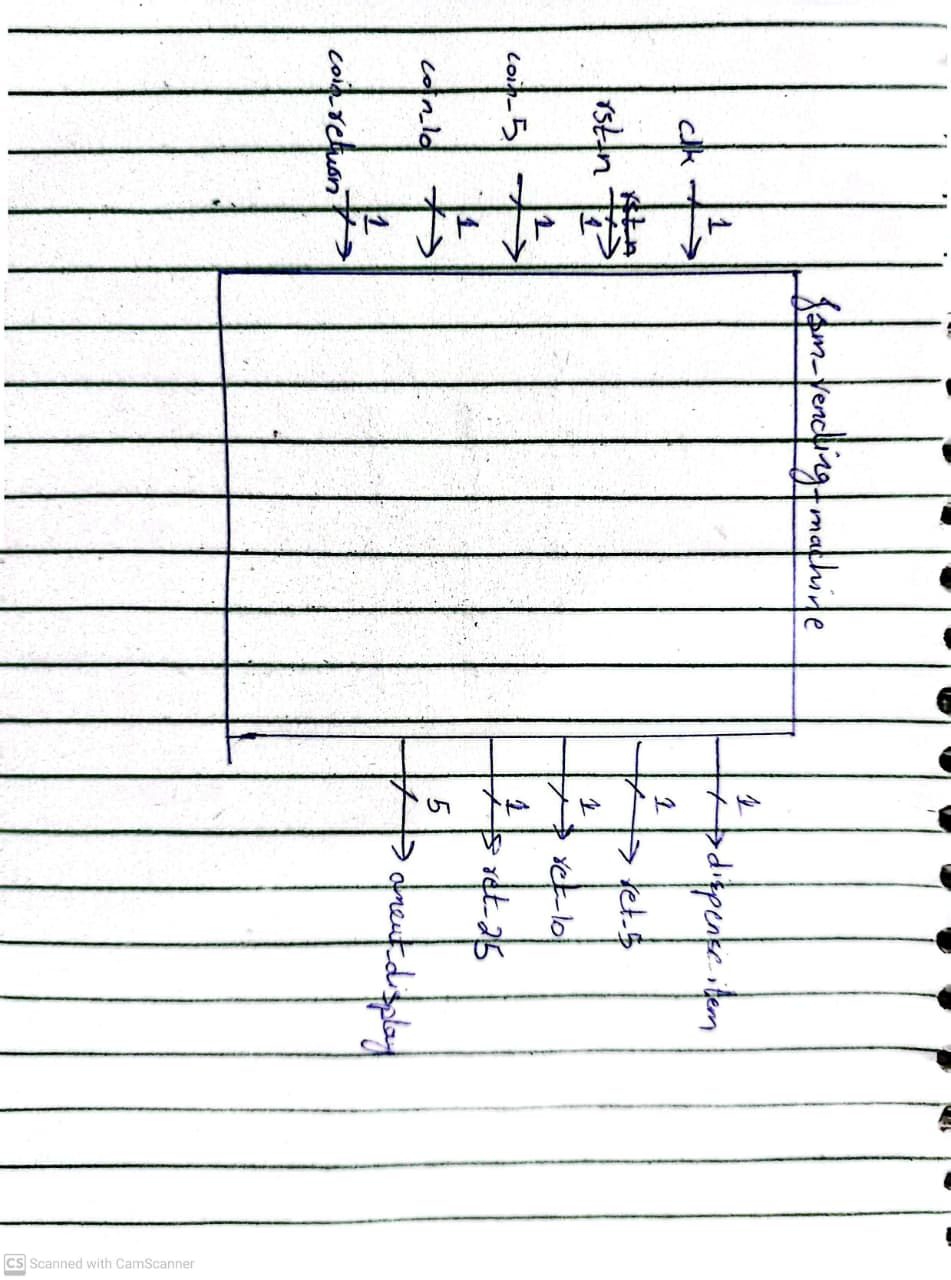 fsm_vending_machine
1
clk
rst_n
rst_n
1
1
coin_5
1
coin_10
1
coin_return
1
dispense_item
1
ret_5
1
ret_10
1
ret_25
5
amout_display
CS Scanned with CamScanner